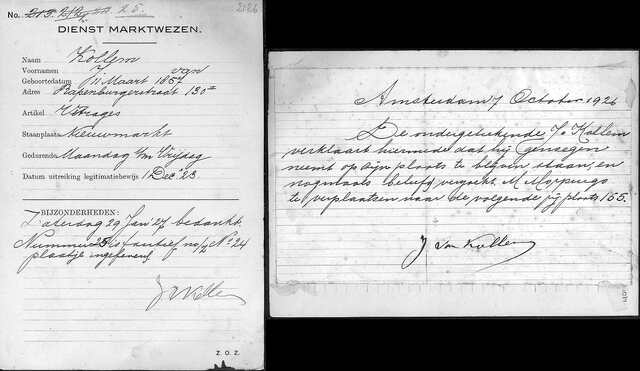 No. 213. 2/2 25.
2126
DIENST MARKTWEZEN.
Naam Kollem
Voornamen J. van
Geboortedatum 11 Maart 1857
Adres Batenburgerstraat 130
Artikel
Staanplaats Nieuwmarkt
Gedurende Maandag t/m Vrijdag
Datum uitreiking legitimatiebewijs 1 Dec. '23.
BIJZONDERHEDEN:
Zaterdag 29 Jan '27 bedankt.
Nummer No 24
plaatje ingeleverd
J v Kollem
Z. O. Z.
Amsterdam 7 October 1926
De ondergetekende J. v. Kollem
verklaart hiermede dat hij genoegen
neemt op zijn plaats te blijven staan, en
nogmaals beleefd verzoekt M. Morpurgo
te verplaatsen naar de volgende plaats 155.
J van Kollem